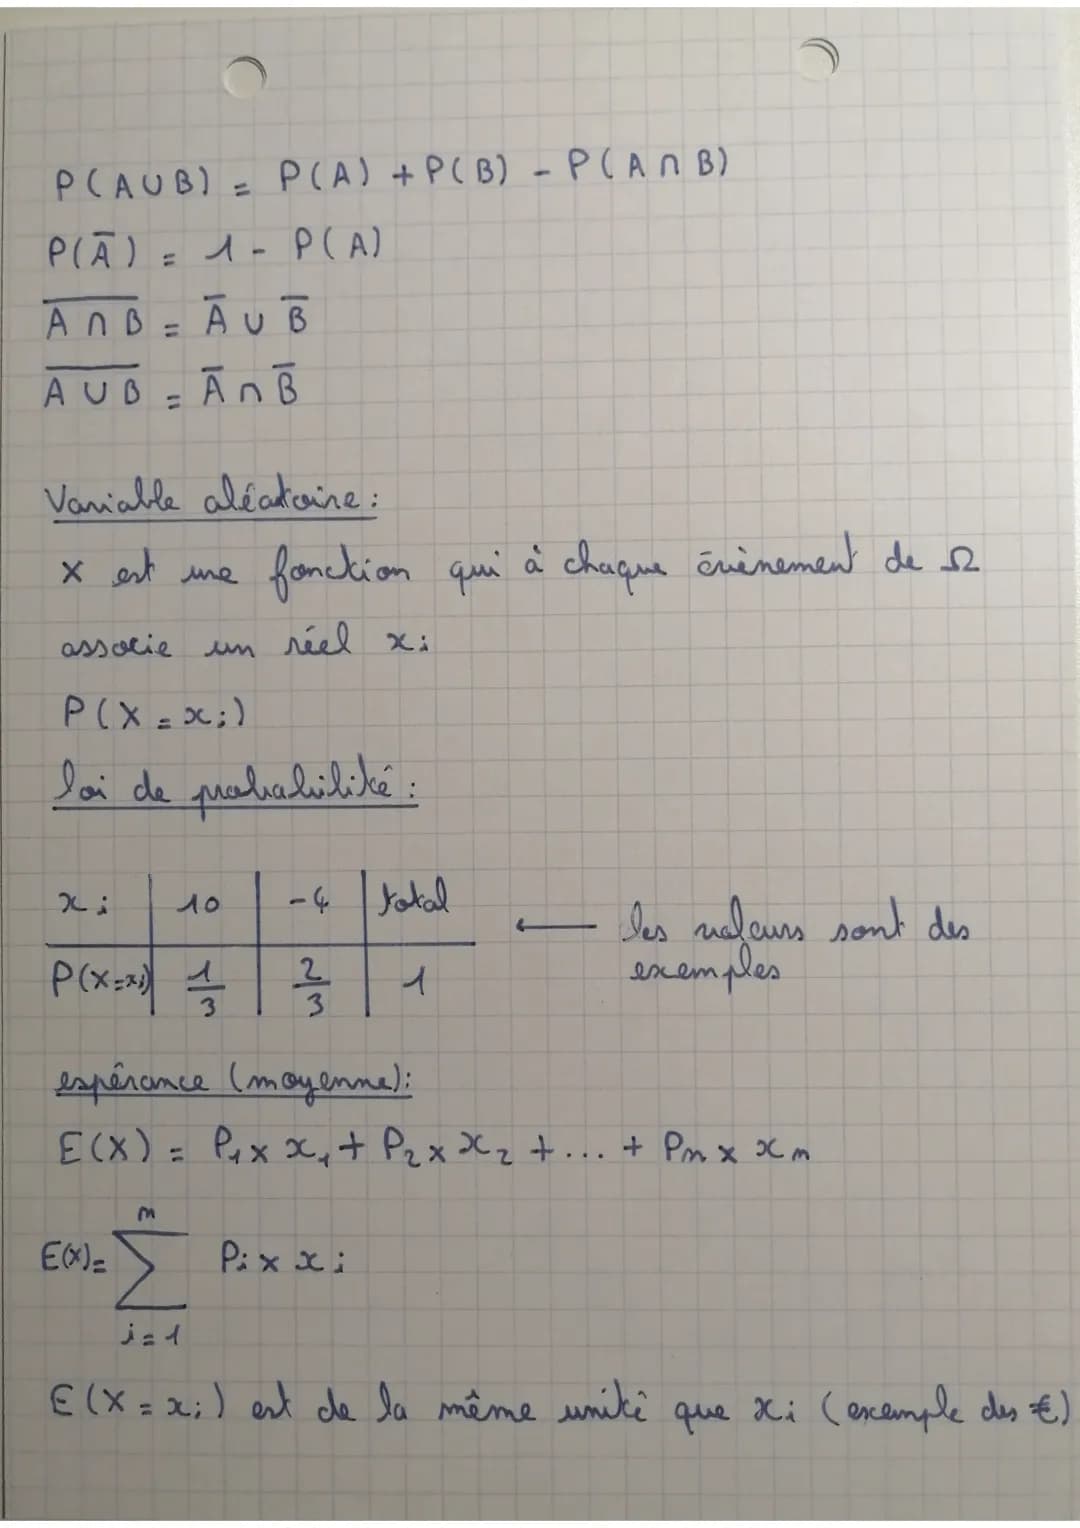 P(A∪B) = P(A) + P(B) - P(A∩B)
P(A̅) = 1 - P(A)
A̅ ̅∩̅ ̅B̅ = A̅ ∪ B̅
A̅ ̅∪̅ ̅B̅ = A̅ ∩ B̅
Variable aléatoire :
X est une fonction qui à chaque évènement de Ω
associe un réel xi
P(X = xi)
loi de probabilité :
xi | 10 | -4 | total
P(X=xi) | 1/3 | 2/3 | 1
← les valeurs sont des
exemples
espérance (moyenne) :
E(X) = P₁ × x₁ + P₂ × x₂ + ... + Pn × xn
n
E(X) = ∑ Pi × xi
i = 1
E(X = xi) est de la même unité que xi (exemple des €)